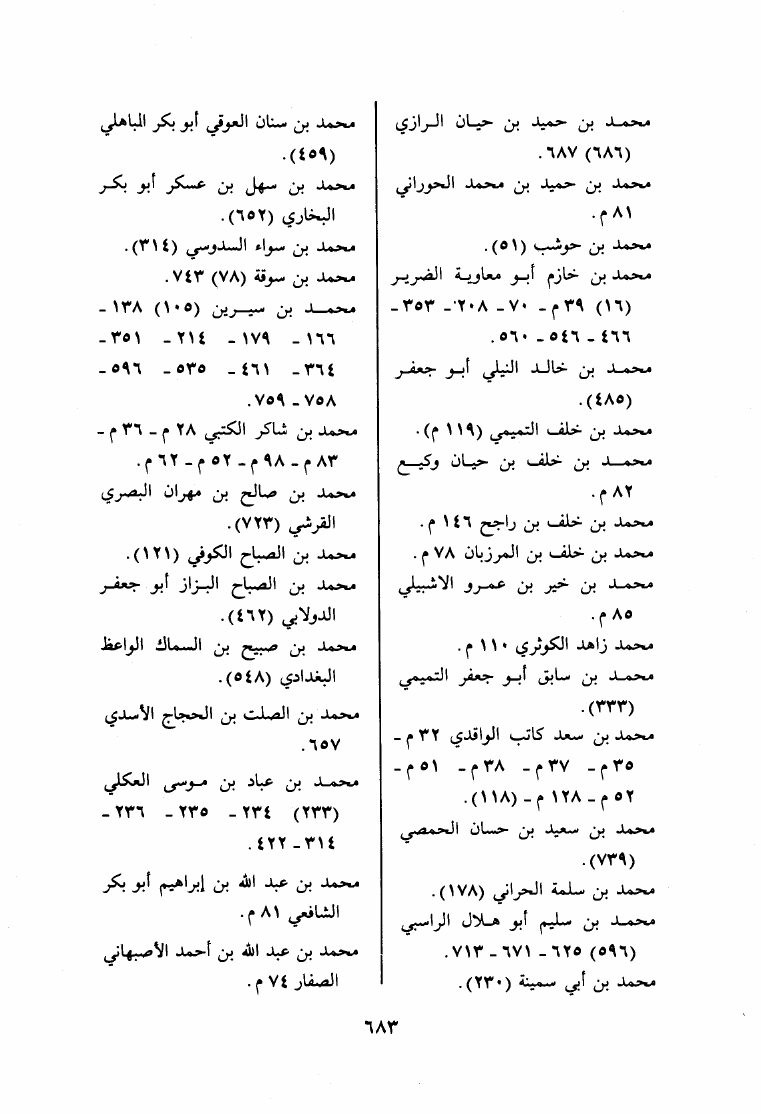 محمد بن حميد بن حيان الرازي
(٦٨٦) ٦٨٧.
محمد بن حميد بن محمد الحوراني
٨١ م.
محمد بن حوشب (٥١).
محمد بن خازم أبو معاوية الضرير
(١٦) ٣٩ م - ٧٠ - ٢٠٨ - ٣٥٣ -
٤٦٦ - ٥٤٦ - ٥٦٠.
محمد بن خالد النيلي أبو جعفر
(٤٨٥).
محمد بن خلف التميمي (١١٩ م).
محمد بن خلف بن حيان وكيع
٨٢ م.
محمد بن خلف بن راجح ١٤٦ م.
محمد بن خلف بن المرزبان ٧٨ م.
محمد بن خير بن عمرو الاشبيلي
٨٥ م.
محمد زاهد الكوثري ١١٠ م.
محمد بن سابق أبو جعفر التميمي
(٣٣٣).
محمد بن سعد كاتب الواقدي ٣٢ م -
٣٥ م - ٣٧ م - ٣٨ م - ٥١ م -
٥٢ م - ١٢٨ م - (١١٨).
محمد بن سعيد بن حسان الحمصي
(٧٣٩).
محمد بن سلمة الحراني (١٧٨).
محمد بن سليم أبو هلال الراسبي
(٥٩٦) ٦٢٥ - ٦٧١ - ٧١٣.
محمد بن أبي سمينة (٢٣٠).
محمد بن سنان العوقي أبو بكر الباهلي
(٤٥٩).
محمد بن سهل بن عسكر أبو بكر
البخاري (٦٥٢).
محمد بن سواء السدوسي (٣١٤).
محمد بن سوقة (٧٨) ٧٤٣.
محمد بن سيرين (١٠٥) ١٣٨ -
١٦٦ - ١٧٩ - ٢١٤ - ٣٥١ -
٣٦٤ - ٤٦١ - ٥٣٥ - ٥٩٦ -
٧٥٨ - ٧٥٩.
محمد بن شاكر الكتبي ٢٨ م - ٣٦ م -
٨٣ م - ٩٨ م - ٥٢ م - ٦٢ م.
محمد بن صالح بن مهران البصري
القرشي (٧٢٣).
محمد بن الصباح الكوفي (١٢١).
محمد بن الصباح البزاز أبو جعفر
الدولابي (٤٦٢).
محمد بن صبيح بن السماك الواعظ
البغدادي (٥٤٨).
محمد بن الصلت بن الحجاج الأسدي
٦٥٧.
محمد بن عباد بن موسى العكلي
(٢٣٣) ٢٣٤ - ٢٣٥ - ٢٣٦ -
٣١٤ - ٤٢٢.
محمد بن عبد الله بن إبراهيم أبو بكر
الشافعي ٨١ م.
محمد بن عبد الله بن أحمد الأصبهاني
الصفار ٧٤ م.
٦٨٣